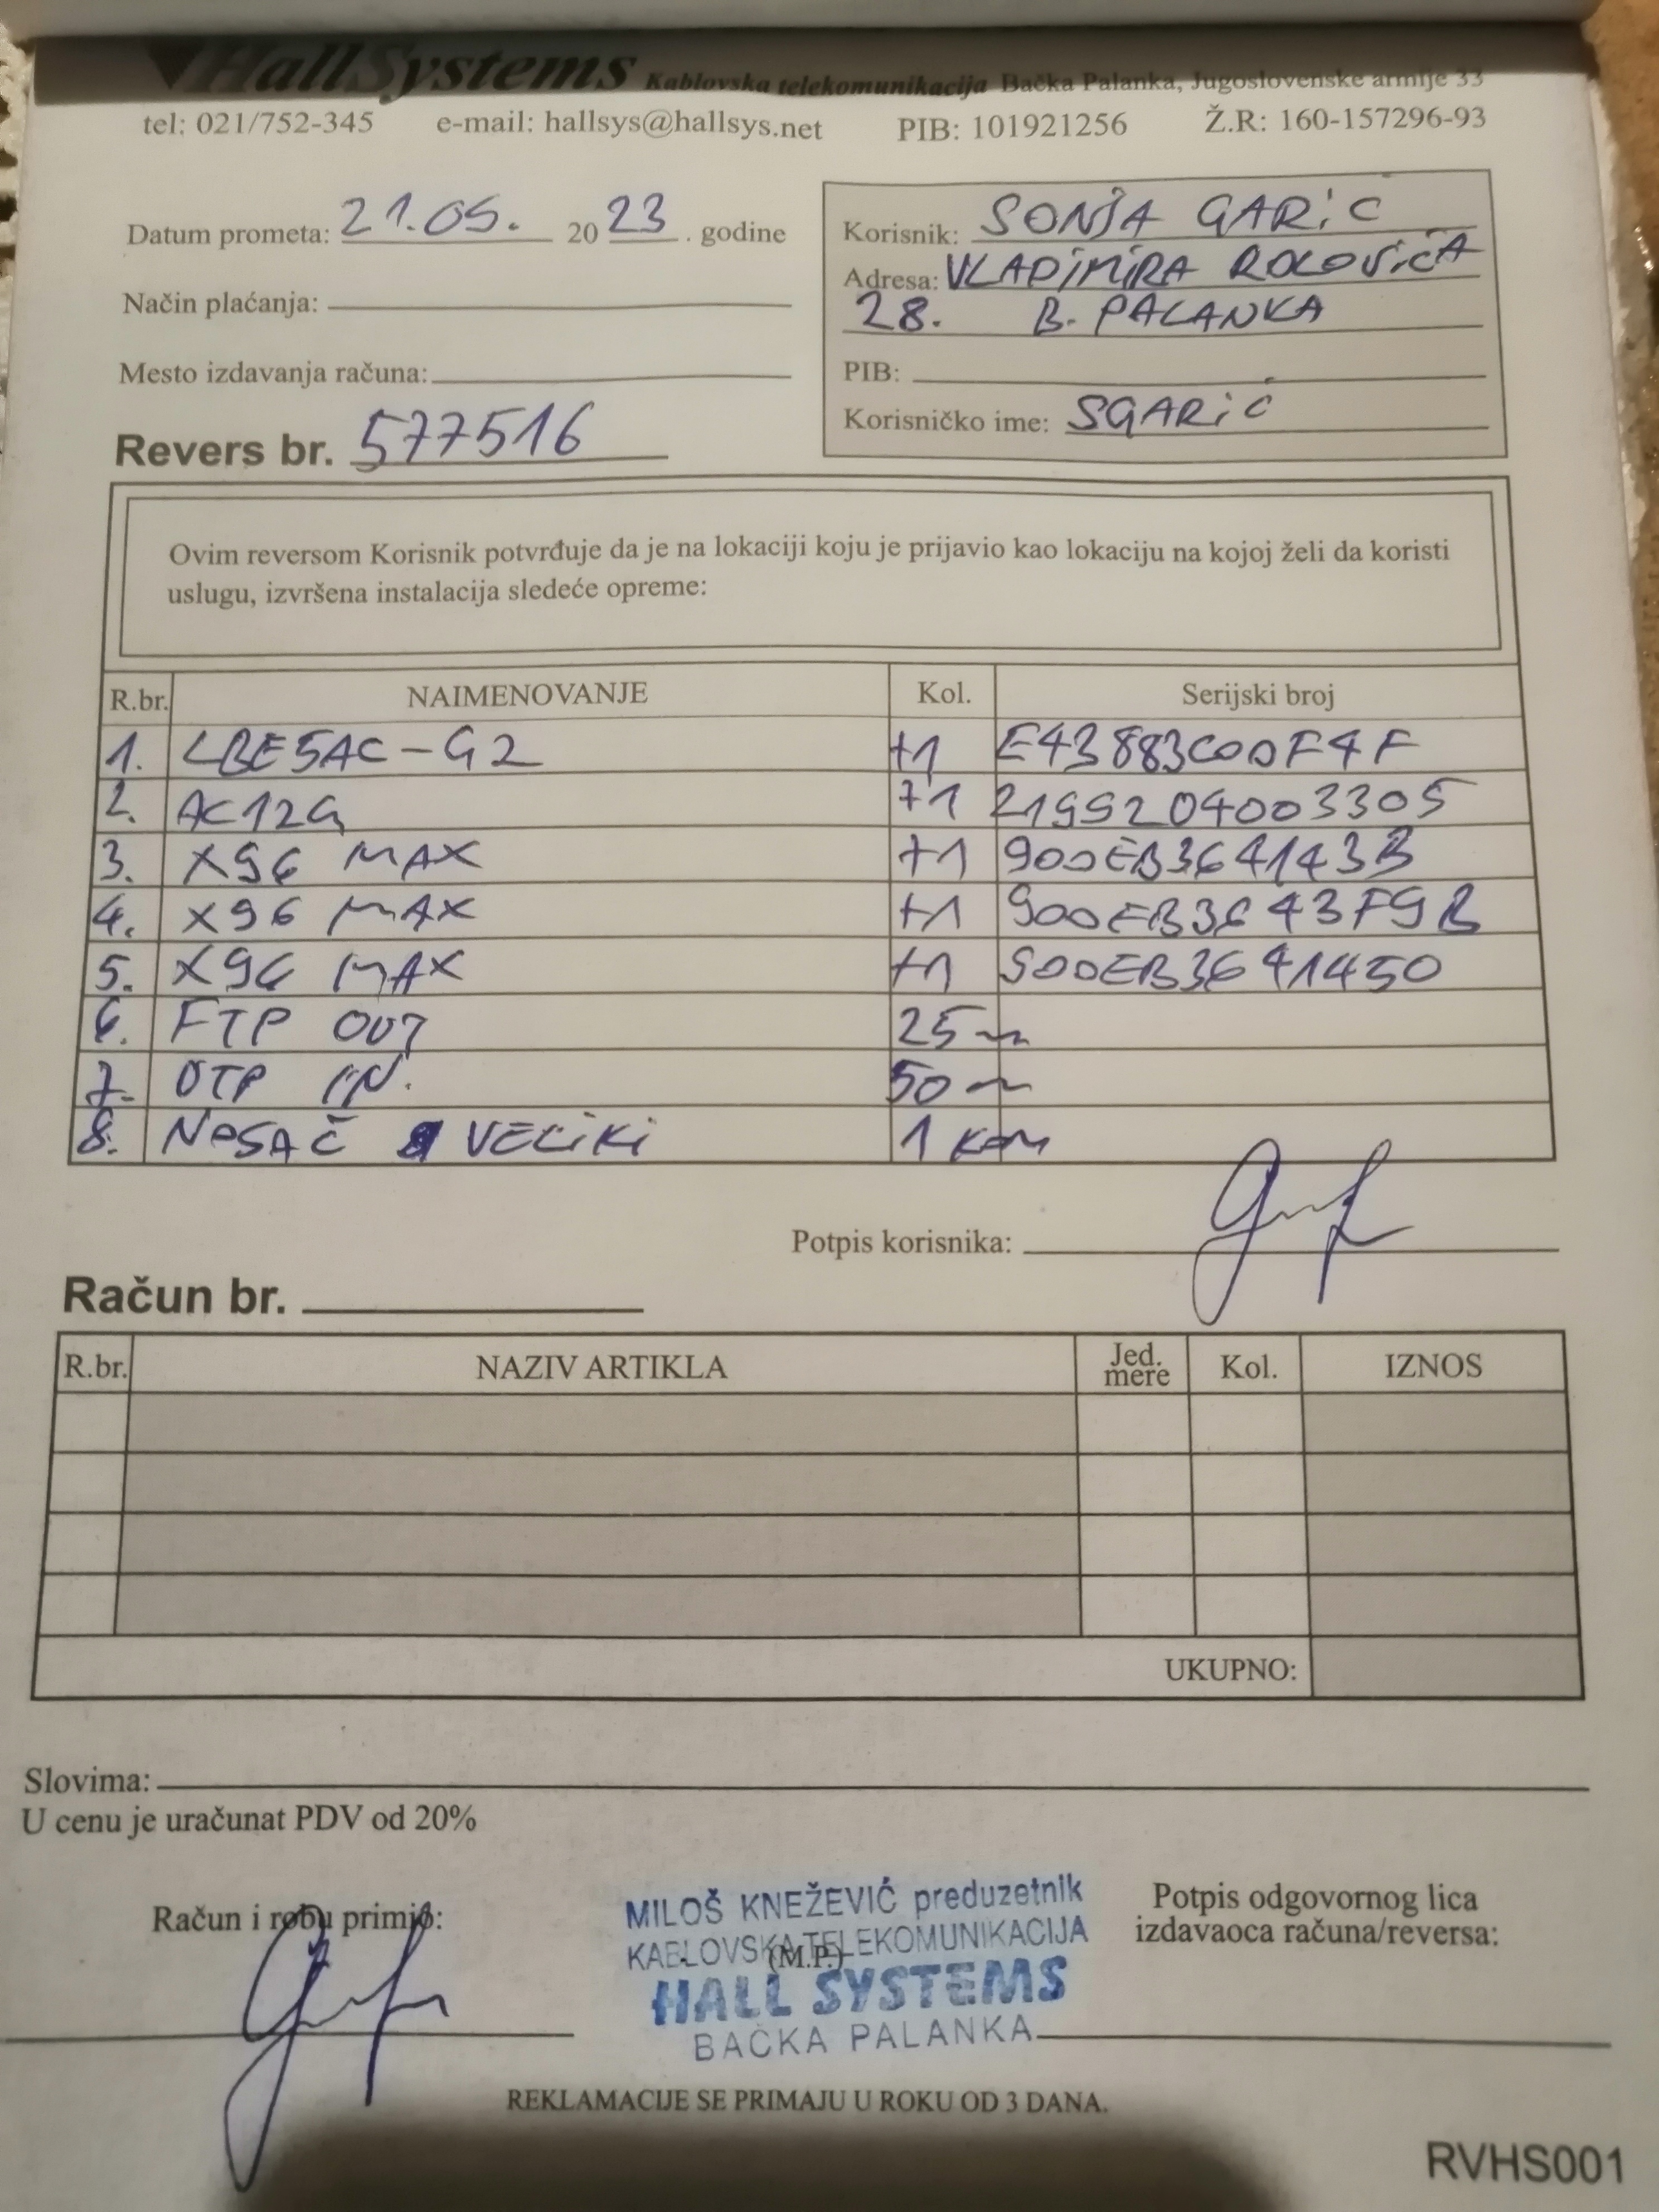 HallSystems Kablovska telekomunikacija Bačka Palanka, Jugoslovenske armije 33
tel: 021/752-345 e-mail: hallsys@hallsys.net PIB: 101921256 Ž.R: 160-157296-93
Datum prometa: 21.05. 2023. godine
Način plaćanja:
Mesto izdavanja računa:
Revers br. 577516
Korisnik: SONJA GARIĆ
Adresa: VLADIMIRA ROLOVIĆA
28. B. PALANKA
PIB:
Korisničko ime: SGARIĆ
Ovim reversom Korisnik potvrđuje da je na lokaciji koju je prijavio kao lokaciju na kojoj želi da koristi
uslugu, izvršena instalacija sledeće opreme:
R.br. NAIMENOVANJE Kol. Serijski broj
1. LBE5AC-G2 +1 E43883C00F4F
2. AC12G +1 2199204003305
3. X96 MAX +1 900EB364143B
4. X96 MAX +1 900EB3643F9B
5. X96 MAX +1 900EB3641450
6. FTP OUT 25m
7. UTP IN. 50m
8. NOSAČ VELIKI 1 KOM
Potpis korisnika:
Račun br.
R.br. NAZIV ARTIKLA Jed. mere Kol. IZNOS
UKUPNO:
Slovima:
U cenu je uračunat PDV od 20%
Račun i robu primio:
MILOŠ KNEŽEVIĆ preduzetnik
KABLOVSKA TELEKOMUNIKACIJA
(M.P.)
HALL SYSTEMS
BAČKA PALANKA
Potpis odgovornog lica
izdavaoca računa/reversa:
REKLAMACIJE SE PRIMAJU U ROKU OD 3 DANA.
RVHS001